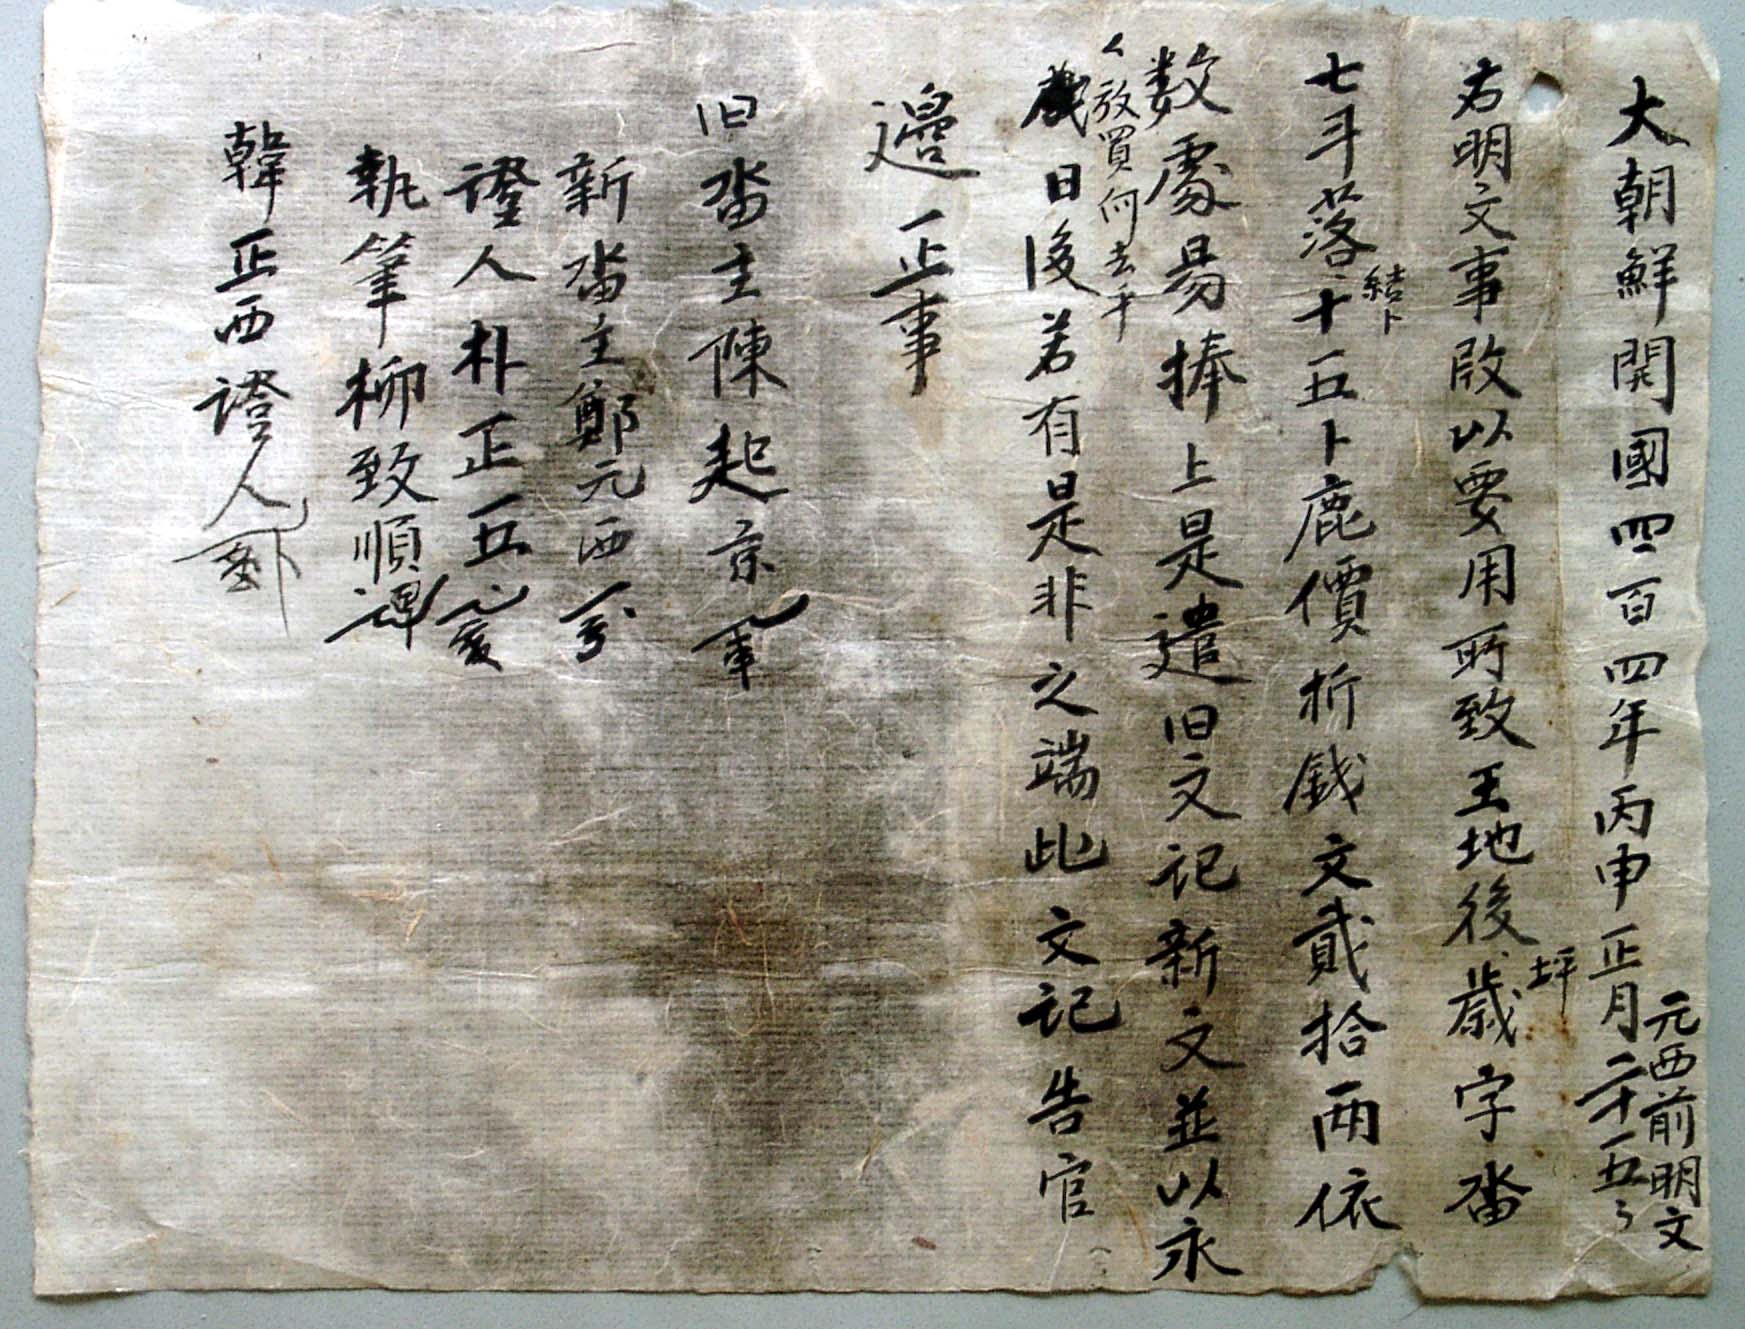 大朝鮮開國四百四年丙申正月二十五
元西前明文
右明文事段以要用所致王地後坪歲字畓
七斗落結卜十五卜鹿價折錢文貳拾兩依
数處易捧上是遣旧文記新文並以永
永放買何去乎
日後若有是非之端此文記告官
邉正事
旧畓主陳起京
新畓主鄭元西
證人朴正五
執筆柳致順
韓正西證人